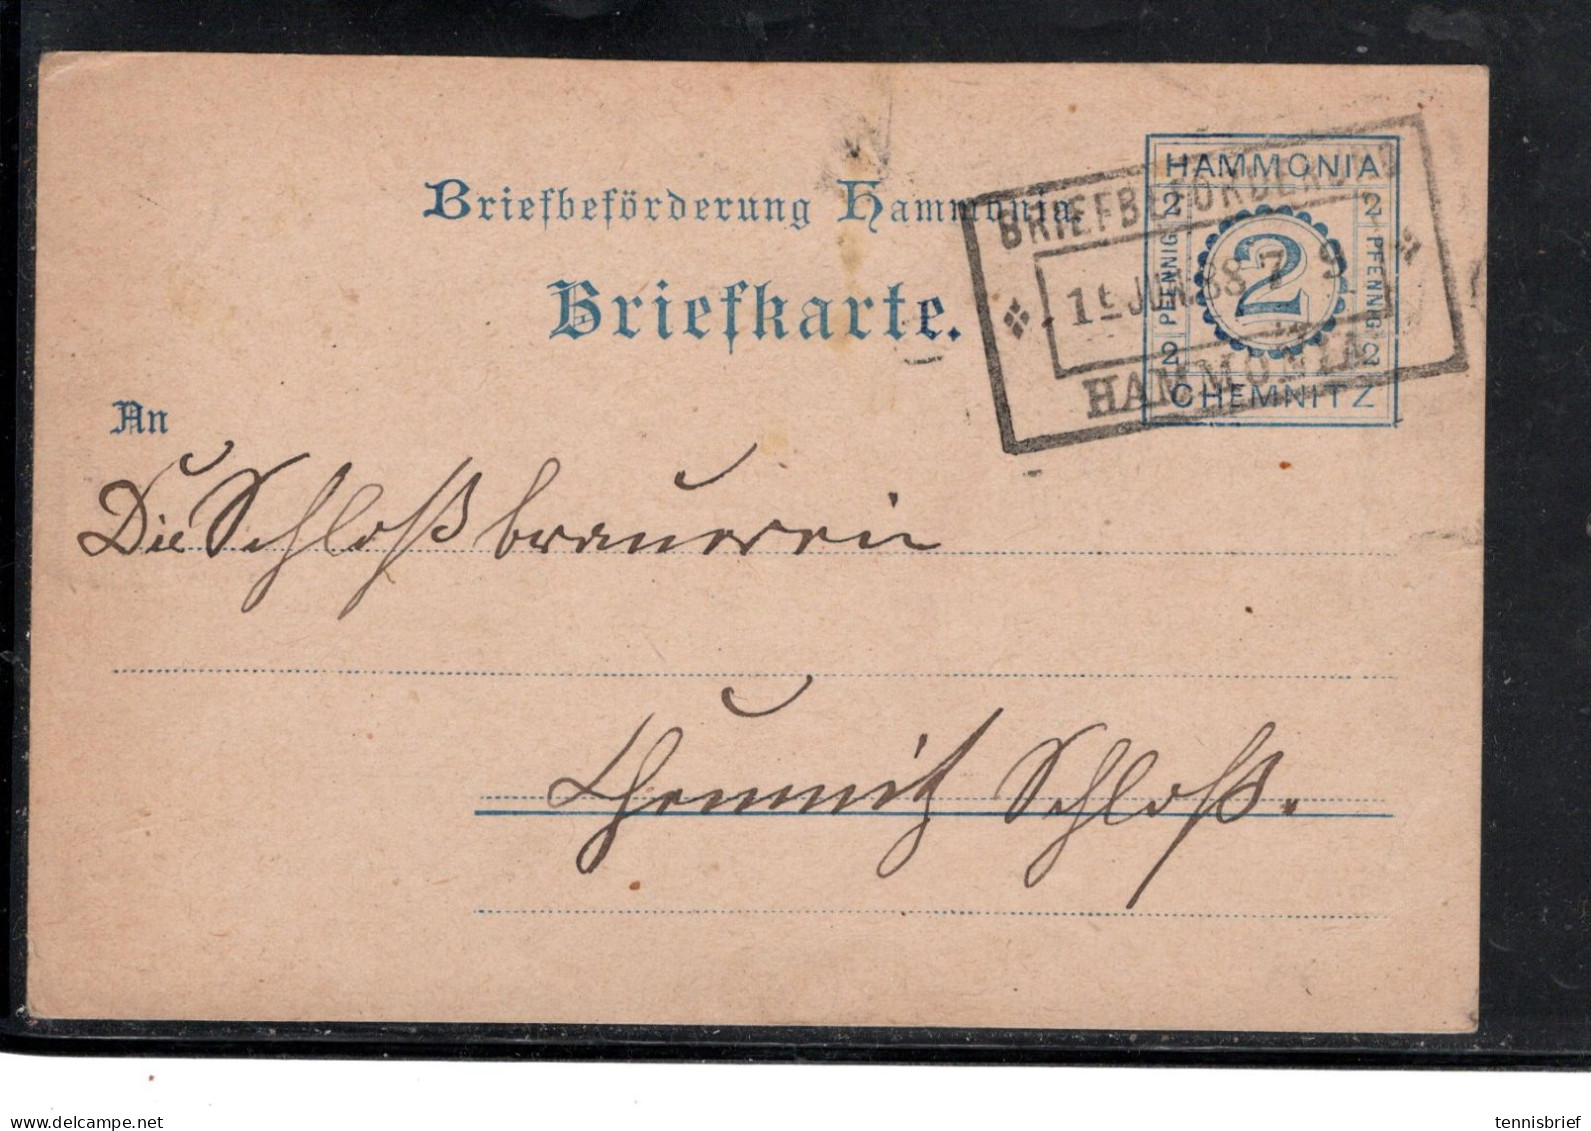 Briefbeförderung Hammonia.
Briefkarte.
HAMMONIA
2 2
PFENNIG 2 PFENNIG
2 2
CHEMNITZ
BRIEFBEFÖRDERUNG
JUN. 88 7 - 9
HAMMONIA
An
Die Schloßbrauerein
Chemnitz Schloß.
tennisbrief